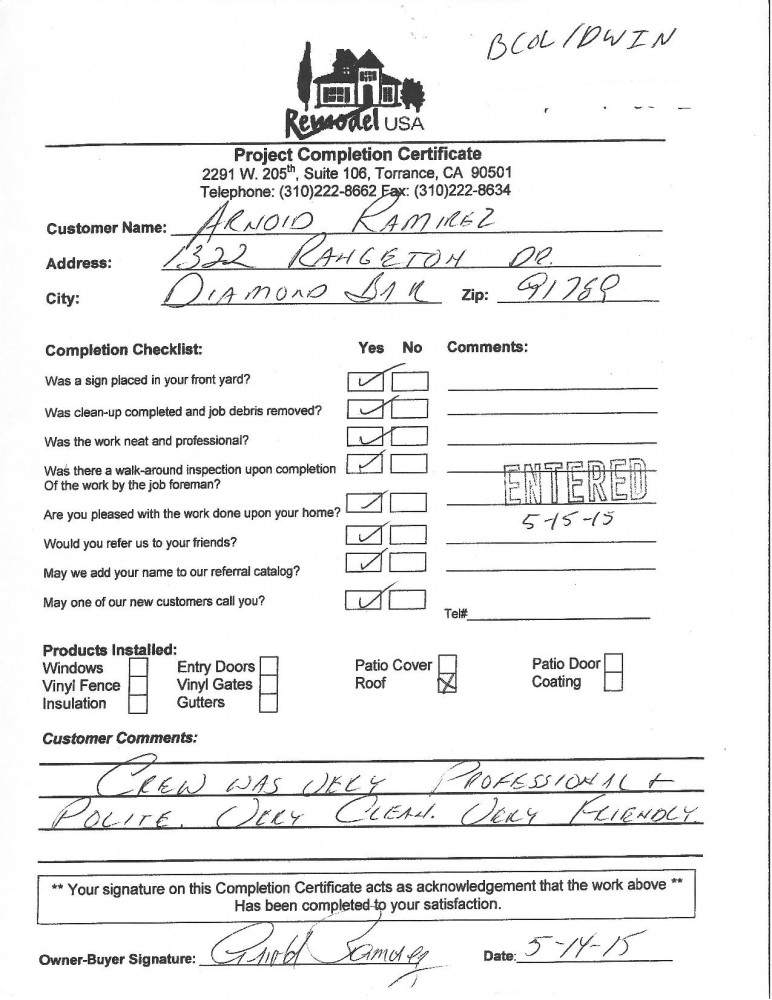 BCOL/DWIN
Remodel USA
Project Completion Certificate
2291 W. 205th, Suite 106, Torrance, CA 90501
Telephone: (310)222-8662 Fax: (310)222-8634
Customer Name: ARNOLD RAMIREZ
Address: 1322 RANGETON DR.
City: DIAMOND BAR Zip: 91789
Completion Checklist: Yes No Comments:
Was a sign placed in your front yard?
Was clean-up completed and job debris removed?
Was the work neat and professional?
Was there a walk-around inspection upon completion
Of the work by the job foreman?
ENTERED
Are you pleased with the work done upon your home?
5-15-15
Would you refer us to your friends?
May we add your name to our referral catalog?
May one of our new customers call you?
Tel#
Products Installed:
Windows Entry Doors Patio Cover Patio Door
Vinyl Fence Vinyl Gates Roof Coating
Insulation Gutters
Customer Comments:
CREW WAS VERY PROFESSIONAL +
POLITE. VERY CLEAN. VERY FRIENDLY.
** Your signature on this Completion Certificate acts as acknowledgement that the work above **
Has been completed to your satisfaction.
Owner-Buyer Signature: Arnold Ramirez Date: 5-14-15